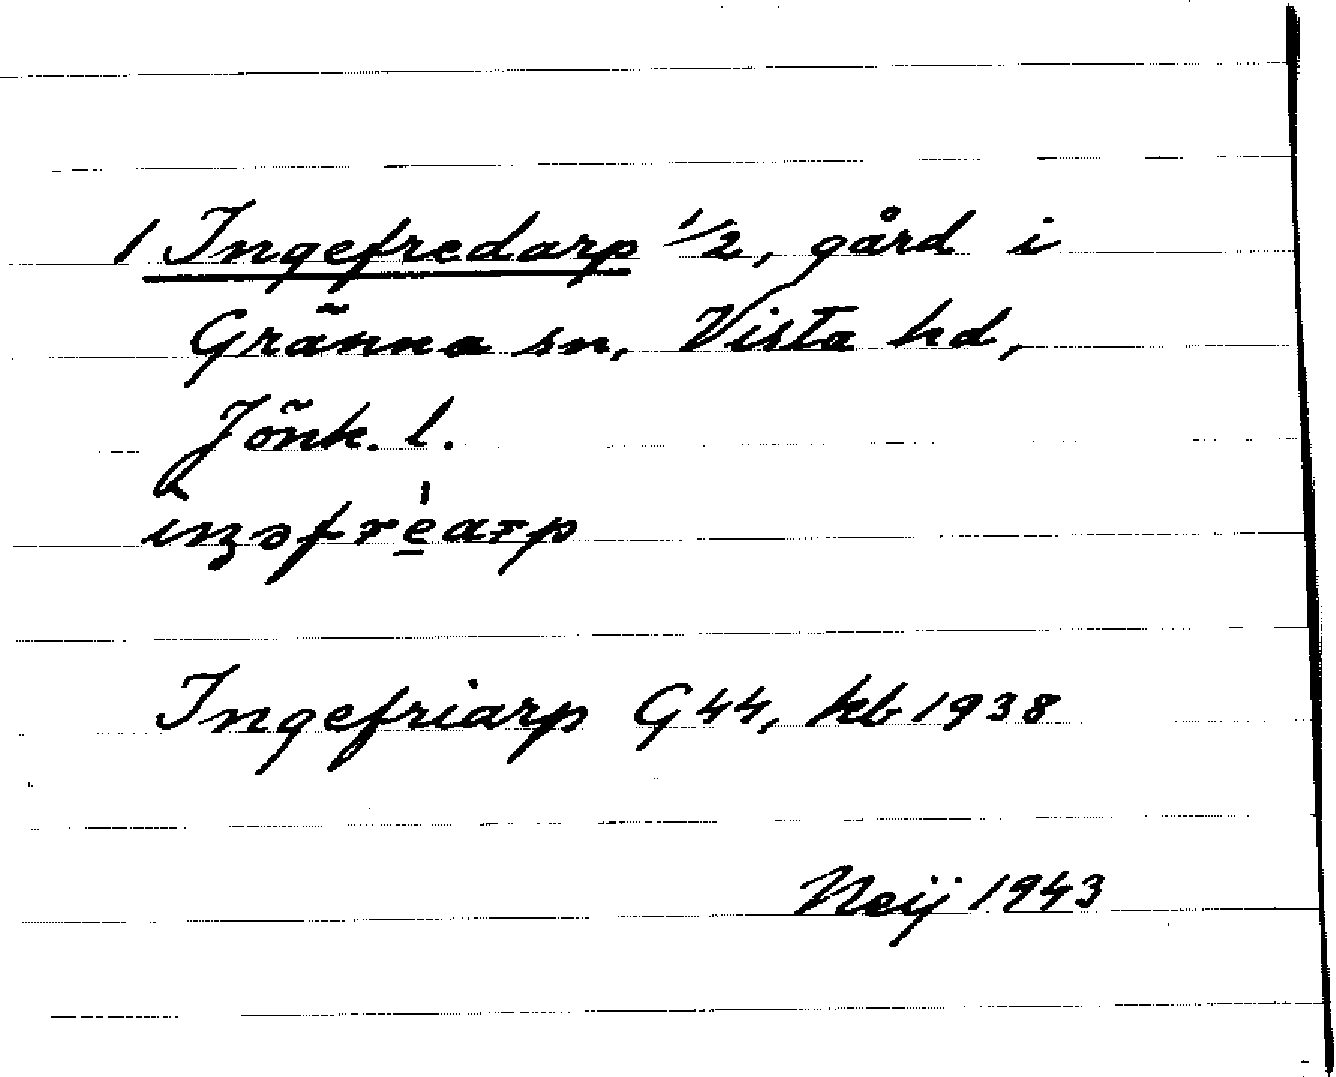 1 Ingefredarp 1/2, gård i
Gränna sn, Vista hd,
Jönk. l.
Ingefriarp G44, kb 1938
Neij 1943